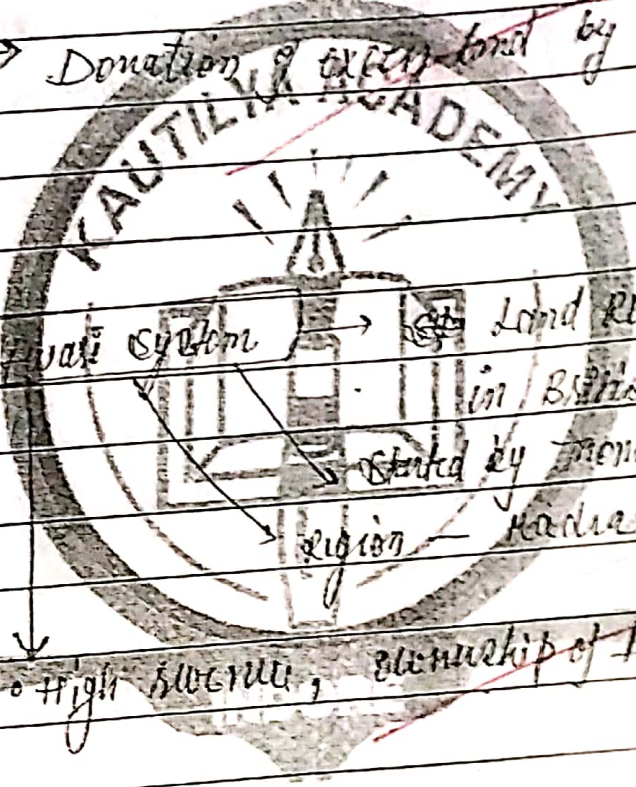 Donation of excess land by
KAUTILYA ACADEMY
wari System → Land Re
in British
Started by
Region — Madra
• High revenue, ownership of